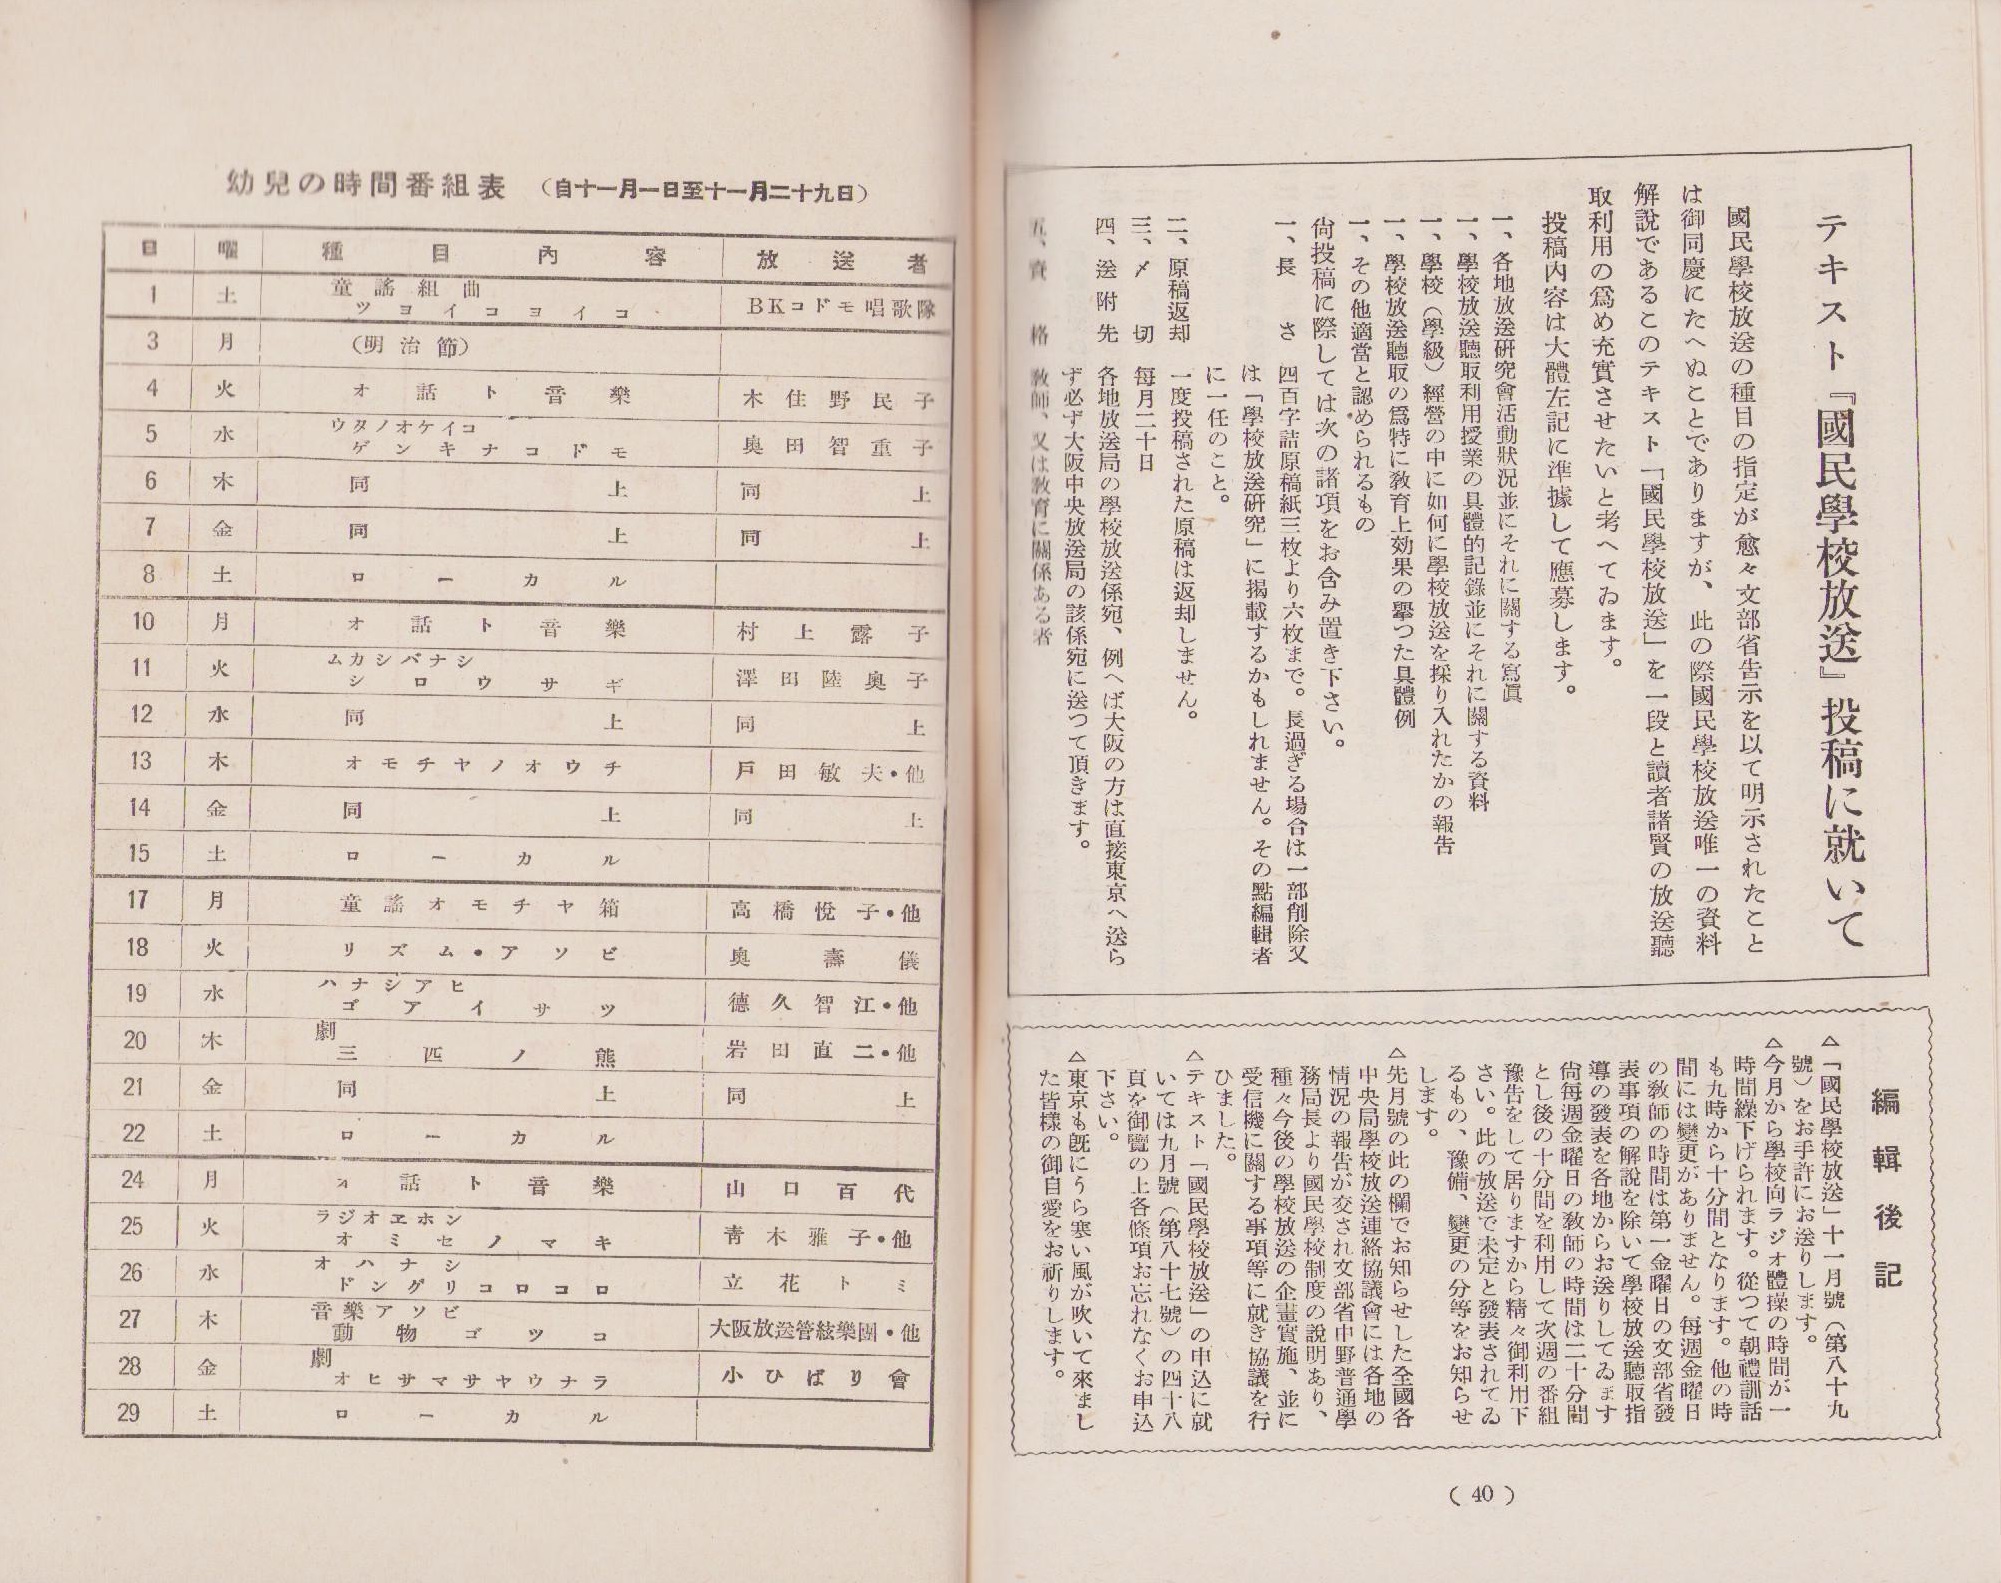 テキスト『國民學校放送』投稿に就いて
國民學校放送の種目の指定が愈々文部省告示を以て明示されたこと
は御同慶にたへぬことでありますが、此の際國民學校放送唯一の資料
解說であるこのテキスト「國民學校放送」を一段と讀者諸賢の放送聽
取利用の爲め充實させたいと考へてゐます。
投稿内容は大體左記に準據して應募します。
一、各地放送研究會活動狀況並にそれに關する寫眞
一、學校放送聽取利用授業の具體的記錄並にそれに關する資料
一、學校(學級)經營の中に如何に學校放送を採り入れたかの報告
一、學校放送聽取の爲特に敎育上効果の擧つた具體例
一、その他適當と認められるもの
尙投稿に際しては次の諸項をお含み置き下さい。
一、長さ 四百字詰原稿紙三枚より六枚まで。長過ぎる場合は一部削除又
は「學校放送硏究」に揭載するかもしれません。その點編輯者
に一任のこと。
二、原稿返却 一度投稿された原稿は返却しません。
三、〆切 每月二十日
四、送附先 各地放送局の學校放送係宛、例へば大阪の方は直接東京へ送ら
ず必ず大阪中央放送局の該係宛に送つて頂きます。
五、資格 敎師、又は敎育に關係ある者
編輯後記
△「國民學校放送」十一月號(第八十九
號)をお手許にお送りします。
△今月から學校向ラジオ體操の時間が一
時間繰下げられます。從つて朝禮訓話
も九時から十分間となります。他の時
間には變更がありません。每週金曜日
の敎師の時間は第一金曜日の文部省發
表事項の解說を除いて學校放送聽取指
導の發表を各地からお送りしてゐます
尙每週金曜日の敎師の時間は二十分間
とし後の十分間を利用して次週の番組
豫吿をして居りますから精々御利用下
さい。此の放送で未定と發表されてゐ
るもの、豫備、變更の分等をお知らせ
します。
△先月號の此の欄でお知らせした全國各
中央局學校放送連絡協議會には各地の
情況の報告が交され文部省中野普通學
務局長より國民學校制度の說明あり、
種々今後の學校放送の企畫實施、並に
受信機に關する事項等に就き協議を行
ひました。
△テキスト「國民學校放送」の申込に就
いては九月號(第八十七號)の四十八
頁を御覽の上各條項お忘れなくお申込
下さい。
△東京も旣にうら寒い風が吹いて來まし
た皆樣の御自愛をお祈りします。
( 40 )
幼兒の時間番組表 (自十一月一日至十一月二十九日)
日 曜 種目內容 放送者
1 土 童謠組曲
ツヨイコヨイコ BKコドモ唱歌隊
3 月 (明治節)
4 火 オ話ト音樂 木住野民子
5 水 ウタノオケイコ
ゲンキナコドモ 奥田智重子
6 木 同上 同上
7 金 同上 同上
8 土 ローカル
10 月 オ話ト音樂 村上露子
11 火 ムカシバナシ
シロウサギ 澤田陸奥子
12 水 同上 同上
13 木 オモチヤノオウチ 戶田敏夫・他
14 金 同上 同上
15 土 ローカル
17 月 童謠オモチヤ箱 高橋悅子・他
18 火 リズム・アソビ 奥壽儀
19 水 ハナシアヒ
ゴアイサツ 德久智江・他
20 木 劇
三匹ノ熊 岩田直二・他
21 金 同上 同上
22 土 ローカル
24 月 オ話ト音樂 山口百代
25 火 ラジオヱホン
オミセノマキ 靑木雅子・他
26 水 オハナシ
ドングリコロコロ 立花トミ
27 木 音樂アソビ
動物ゴツコ 大阪放送管絃樂團・他
28 金 劇
オヒサマサヤウナラ 小ひばり會
29 土 ローカル